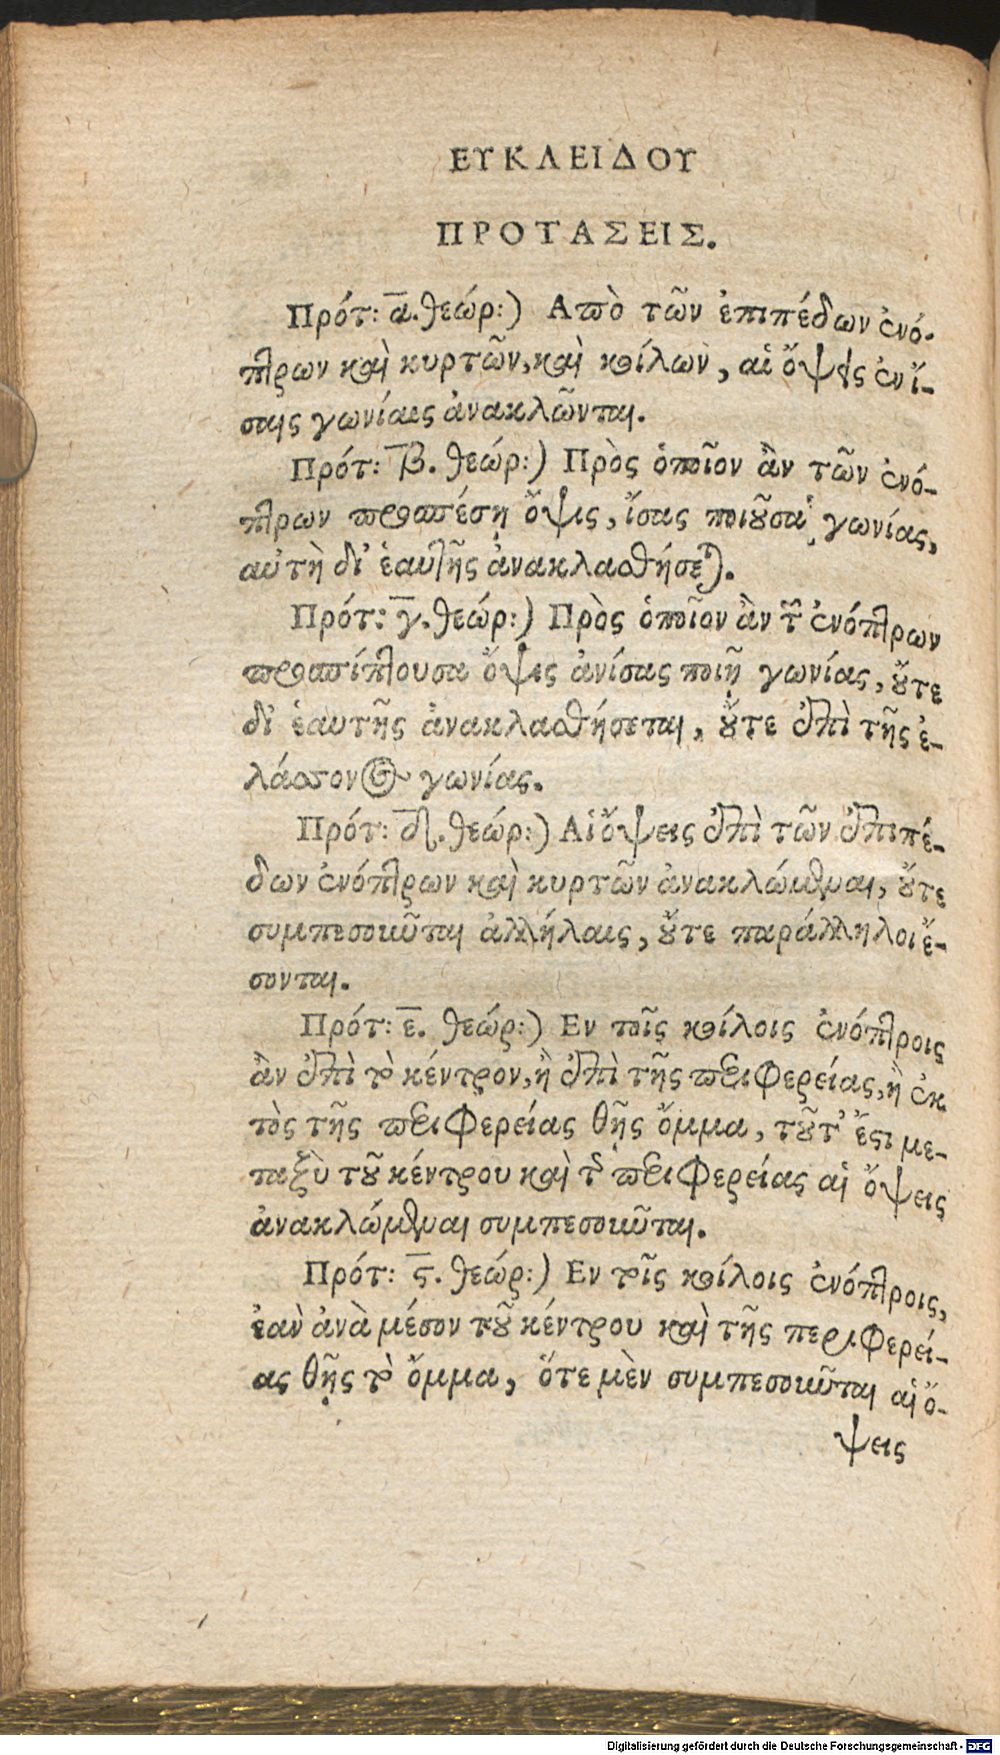 ΕΥΚΛΕΙΔΟΥ
ΠΡΟΤΑΣΕΙΣ.
Πρότ: α̅. θεώρ:) Απὸ τῶν ἐπιπέδων ἐνό-
πτρων καὶ κυρτῶν, καὶ κοίλων, αἱ ὄψεις ἐν ἴ-
σαις γωνίαις ἀνακλῶνται.
Πρότ: β̅. θεώρ:) Πρὸς ὁποῖον ἂν τῶν ἐνό-
πτρων προσπέσῃ ὄψις, ἴσας ποιοῦσα γωνίας,
αὐτὴ δι' ἑαυτῆς ἀνακλασθήσεται.
Πρότ: γ̅. θεώρ:) Πρὸς ὁποῖον ἂν τῶν ἐνόπτρων
προσπίπτουσα ὄψις ἀνίσας ποιῇ γωνίας, οὔτε
δι' ἑαυτῆς ἀνακλασθήσεται, οὔτε ἐπὶ τῆς ἐ-
λάσσονος γωνίας.
Πρότ: δ̅. θεώρ:) Αἱ ὄψεις ἐπὶ τῶν ἐπιπέ-
δων ἐνόπτρων καὶ κυρτῶν ἀνακλώμεναι, οὔτε
συμπεσοῦνται ἀλλήλαις, οὔτε παράλληλοι ἔ-
σονται.
Πρότ: ε̅. θεώρ:) Εν τοῖς κοίλοις ἐνόπτροις
ἂν ἐπὶ τὸ κέντρον, ἢ ἐπὶ τῆς περιφερείας, ἢ ἐκ
τὸς τῆς περιφερείας θῇς ὄμμα, τοῦτ' ἔστι με-
ταξὺ τοῦ κέντρου καὶ τῆς περιφερείας αἱ ὄψεις
ἀνακλώμεναι συμπεσοῦνται.
Πρότ: ϛ̅. θεώρ:) Εν τοῖς κοίλοις ἐνόπτροις,
ἐὰν ἀνὰ μέσον τοῦ κέντρου καὶ τῆς περιφερεί-
ας θῇς τὸ ὄμμα, ὅτε μὲν συμπεσοῦνται αἱ ὄ-
ψεις
Digitalisierung gefördert durch die Deutsche Forschungsgemeinschaft - DFG